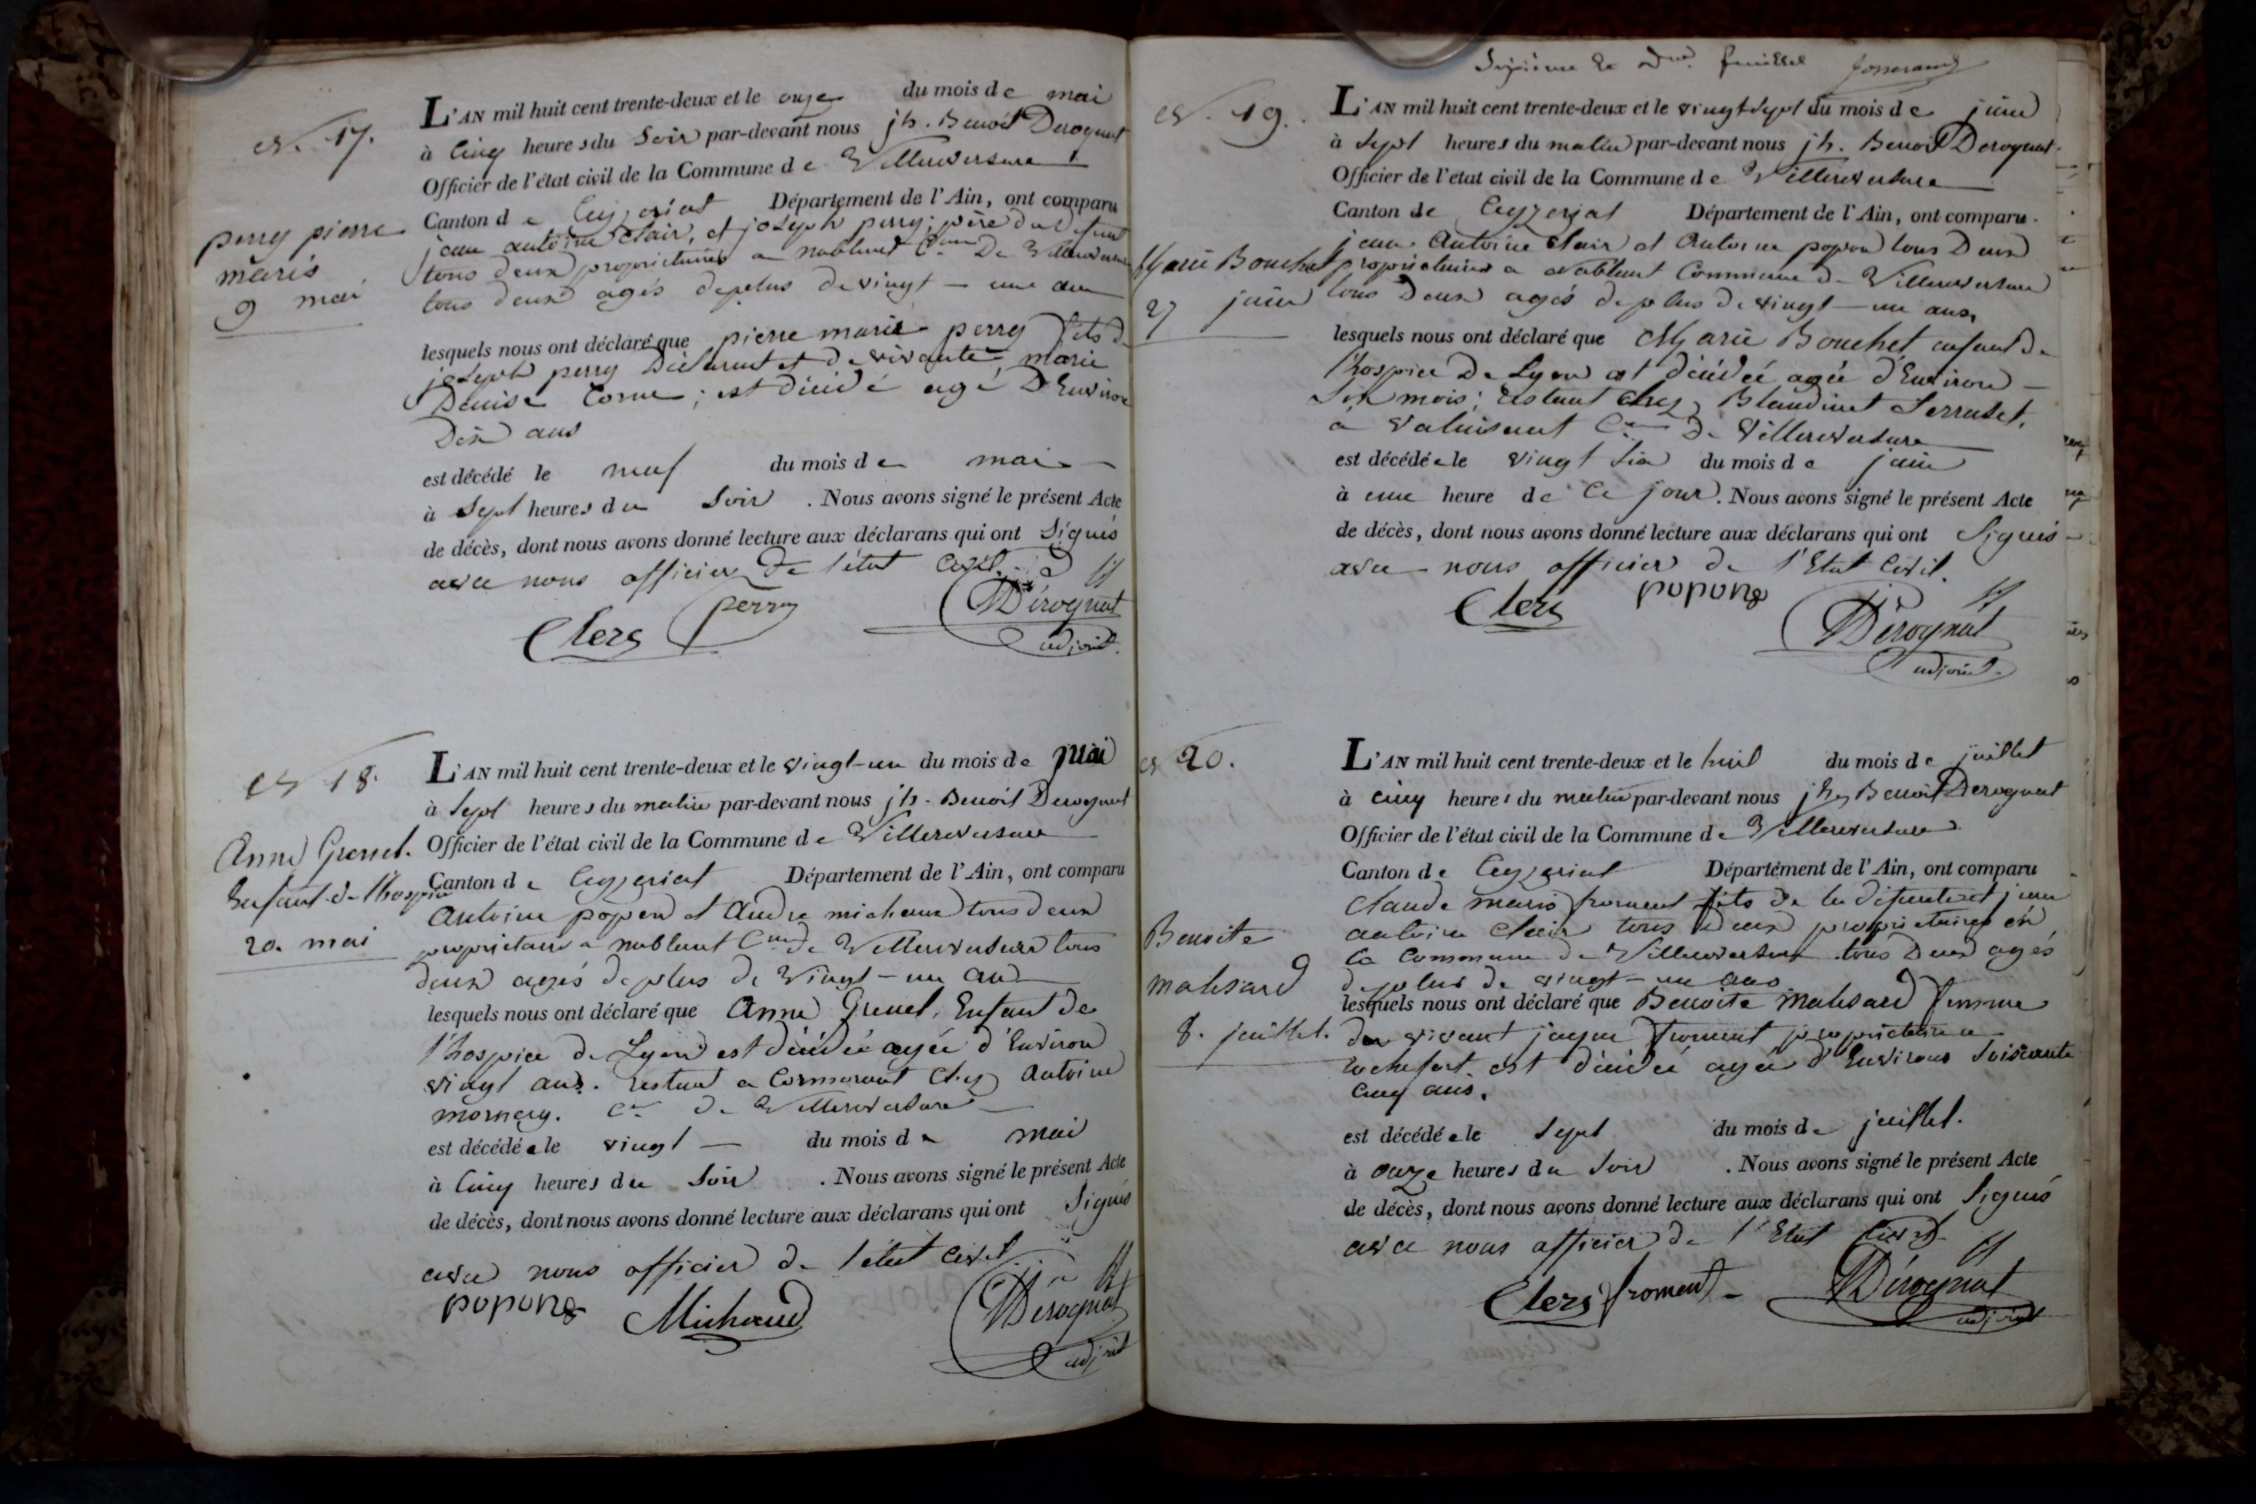 N. 17.
perry pierre
marie
9 mai
L'AN mil huit cent trente-deux et le onze du mois de mai
à Cinq heures du Soir par-devant nous jh. Benoit Derognat
Officier de l'état civil de la Commune de Villereversure
Canton de Ceyzeriat Département de l'Ain, ont comparu
jean antoine Clair, et joseph perry père du défunt
tous deux propriétaires a noblens Cne De Villereversure
tous deux agés deplus de vingt-une ans
lesquels nous ont déclaré que pierre marie perry fils de
joseph perry Déclarant et de vivante marie
Denise Corne; est décédé agé D'Environ
Dix ans
est décédé le neuf du mois de mai
à Sept heures du Soir . Nous avons signé le présent Acte
de décès, dont nous avons donné lecture aux déclarans qui ont Signés
avec nous officier de l'état Civil.
Clerc perry Dérognat
adjoint.
N. 18.
Anne Grenet.
Enfant de l'hospice
20. mai
L'AN mil huit cent trente-deux et le vingt-un du mois de mai
à Sept heures du matin par-devant nous jh. Benoit Derognat
Officier de l'état civil de la Commune de Villereversure
Canton de Ceyzeriat Département de l'Ain, ont comparu
Antoine popon et Andre michaud tous deux
propriétaires a noblens Cne de Villereversure tous
deux agés deplus de Vingt-un ans
lesquels nous ont déclaré que Anne Grenet, Enfant de
l'hospice de Lyon est décédée agée d'Environ
vingt ans. restant a Cormorand Chez Antoine
mornay. Cne de Villereversure
est décédée le vingt du mois de mai
à Cinq heures du Soir . Nous avons signé le présent Acte
de décès, dont nous avons donné lecture aux déclarans qui ont Signés
avec nous officier de l'état civil
popon Michaud Dérognat
adjoint
feuillet
N. 19.
Marie Bouchet
27 juin
L'AN mil huit cent trente-deux et le vingt Sept du mois de juin
à Sept heures du matin par-devant nous jh. Benoit Derognat.
Officier de l'etat civil de la Commune de Villereversure
Canton de Ceyzeriat Département de l'Ain, ont comparu.
jean Antoine Clair et Antoine popon tous Deux
propriétaires a noblens Commune de Villereversure
tous Deux agés deplus de vingt-un ans.
lesquels nous ont déclaré que Marie Bouchet enfant de
l'hospice De Lyon est décédée agée d'Environ
Six mois; restant chez Blandinet
a Valuisant Cne De Villereversure
est décédée le vingt Six du mois de juin
à une heure de Ce jour. Nous avons signé le présent Acte
de décès, dont nous avons donné lecture aux déclarans qui ont Signés
avec nous officier de l'Etat Civil.
Clerc popon Dérognat
adjoint.
N 20.
Benoite
mahsard
8. juillet.
L'AN mil huit cent trente-deux et le huit du mois de juillet
à cinq heures du matin par-devant nous jh Benoit Derognat
Officier de l'état civil de la Commune de Villereversure
Canton de Ceyzeriat Département de l'Ain, ont comparu
Claude marie froment fils de la défunte et jean
antoine Clair tous deux propriétaires en
la Commune de Villereversure tous Deux agés
deplus de vingt-un ans
lesquels nous ont déclaré que Benoite mahsard femme
du vivant jaque froment propriétaire a
rochefort. est décédée agée d'Environ Soixante
Cinq ans.
est décédée le Sept du mois de juillet.
à onze heures du Soir . Nous avons signé le présent Acte
de décès, dont nous avons donné lecture aux déclarans qui ont Signés
avec nous officier de l'Etat Civil
Clerc froment Dérognat
adjoint